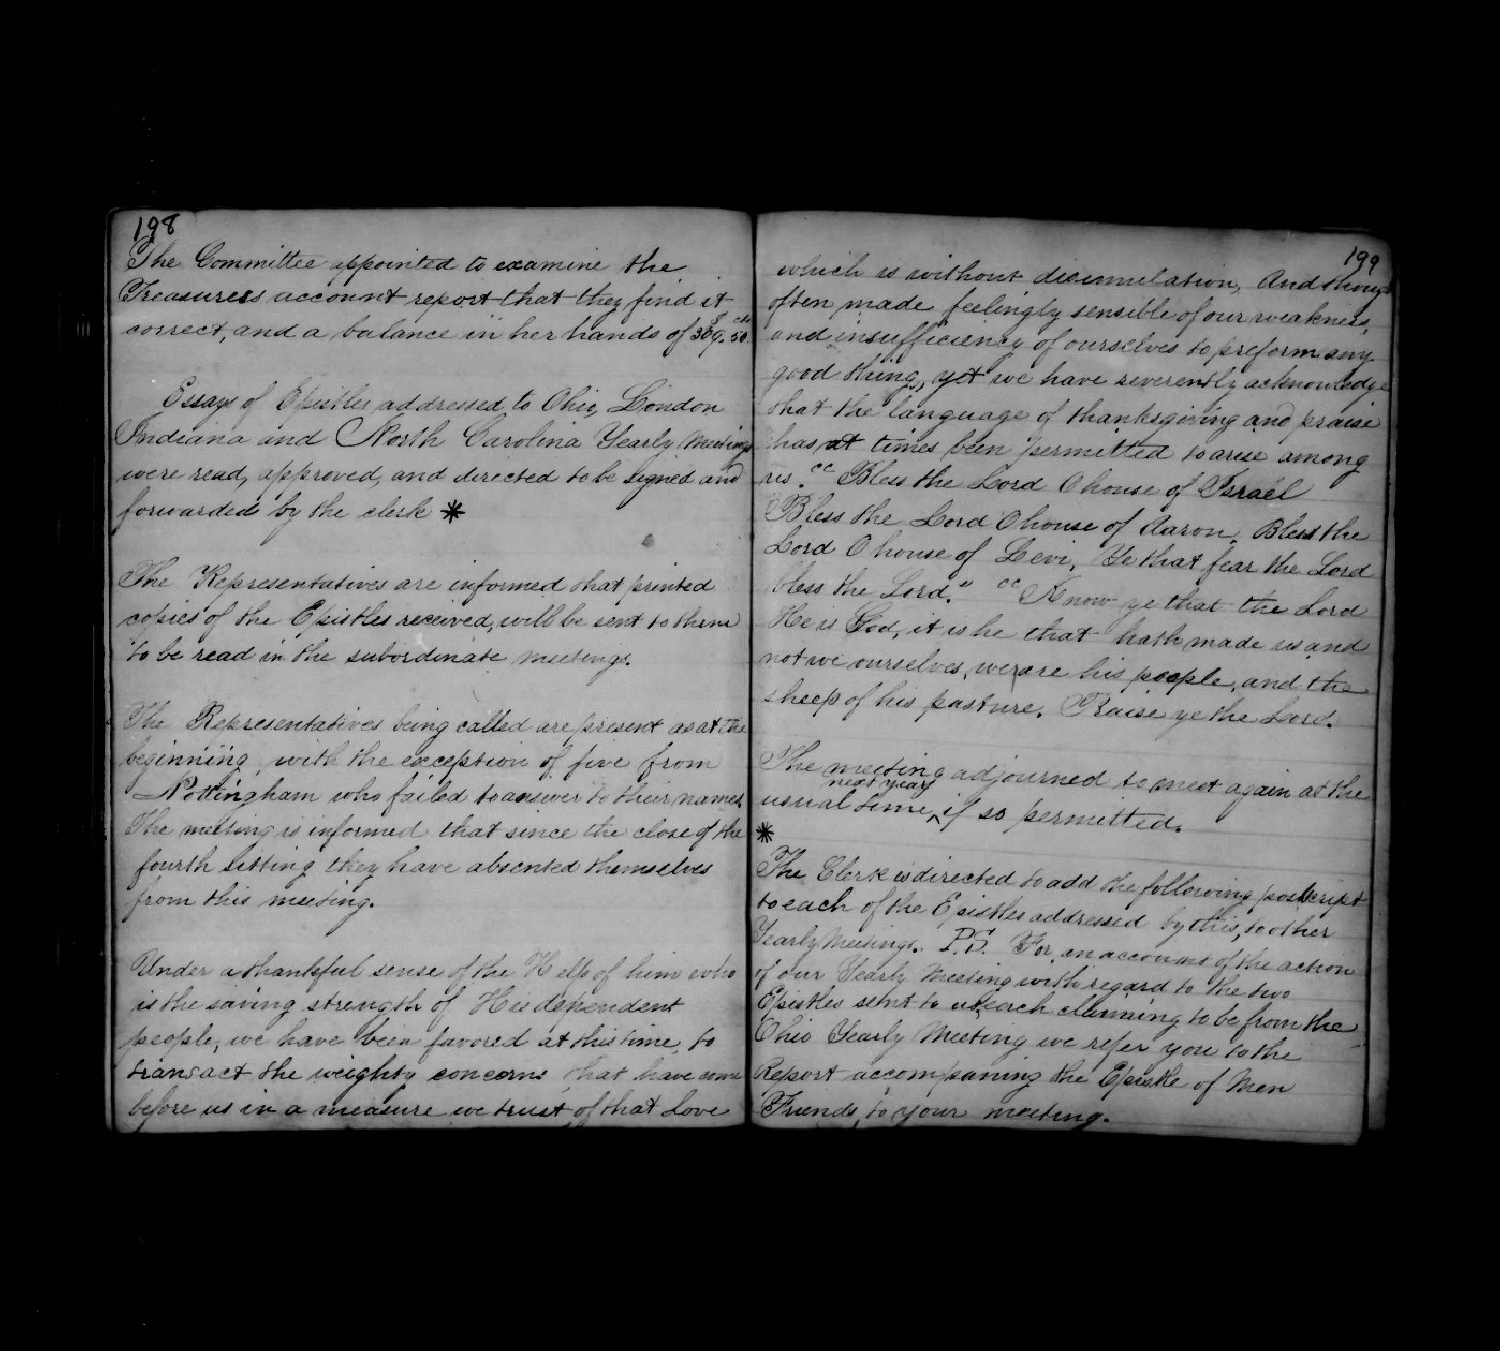 198
The Committee appointed to examine the
Treasurers account report that they find it
correct, and a balance in her hands of
Essays of Epistles addressed to Ohio, London
Indiana and North Carolina Yearly Meetings
were read, approved, and directed to be signed and
forwarded by the clerk *
The Representatives are informed that printed
copies of the Epistles received, will be sent to them
to be read in the subordinate meetings.
The Representatives being called are present as at the
beginning, with the exception of five from
Nottingham who failed to answer to their names.
The meeting is informed that since the close of the
fourth sitting they have absented themselves
from this meeting.
Under a thankful sense of the Help of him who
is the saving strength of His dependent
people, we have been favored at this time, to
transact the weighty concerns that have come
before us in a measure we trust of that Love
199
which is without dissimulation, And though
often made feelingly sensible of our weakness,
and insufficiency of ourselves to preform any
good thing, yet we have reverently acknowledge
that the language of thanksgiving and praise
has at times been permitted to arise among
us. "Bless the Lord O house of Israel
Bless the Lord O house of Aaron, Bless the
Lord O house of Levi, Ye that fear the Lord
bless the Lord." "Know ye that the Lord
He is God, it is he that hath made us and
not we ourselves, we are his people, and the
sheep of his pasture. Praise ye the Lord.
The meeting adjourned to meet again at the
next year
usual time, if so permitted.
*
The Clerk is directed to add the following postcript
to each of the Epistles addressed by this, to other
Yearly Meetings. P.S. For an account of the action
of our Yearly Meeting with regard to the two
Epistles sent to us, each claiming to be from the
Ohio Yearly Meeting we refer you to the
Report accompaning the Epistle of Men
Friends, to your meeting.